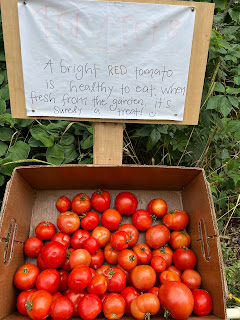 A bright RED tomato
is healthy to eat, when
fresh from the garden, it's
surely a treat!